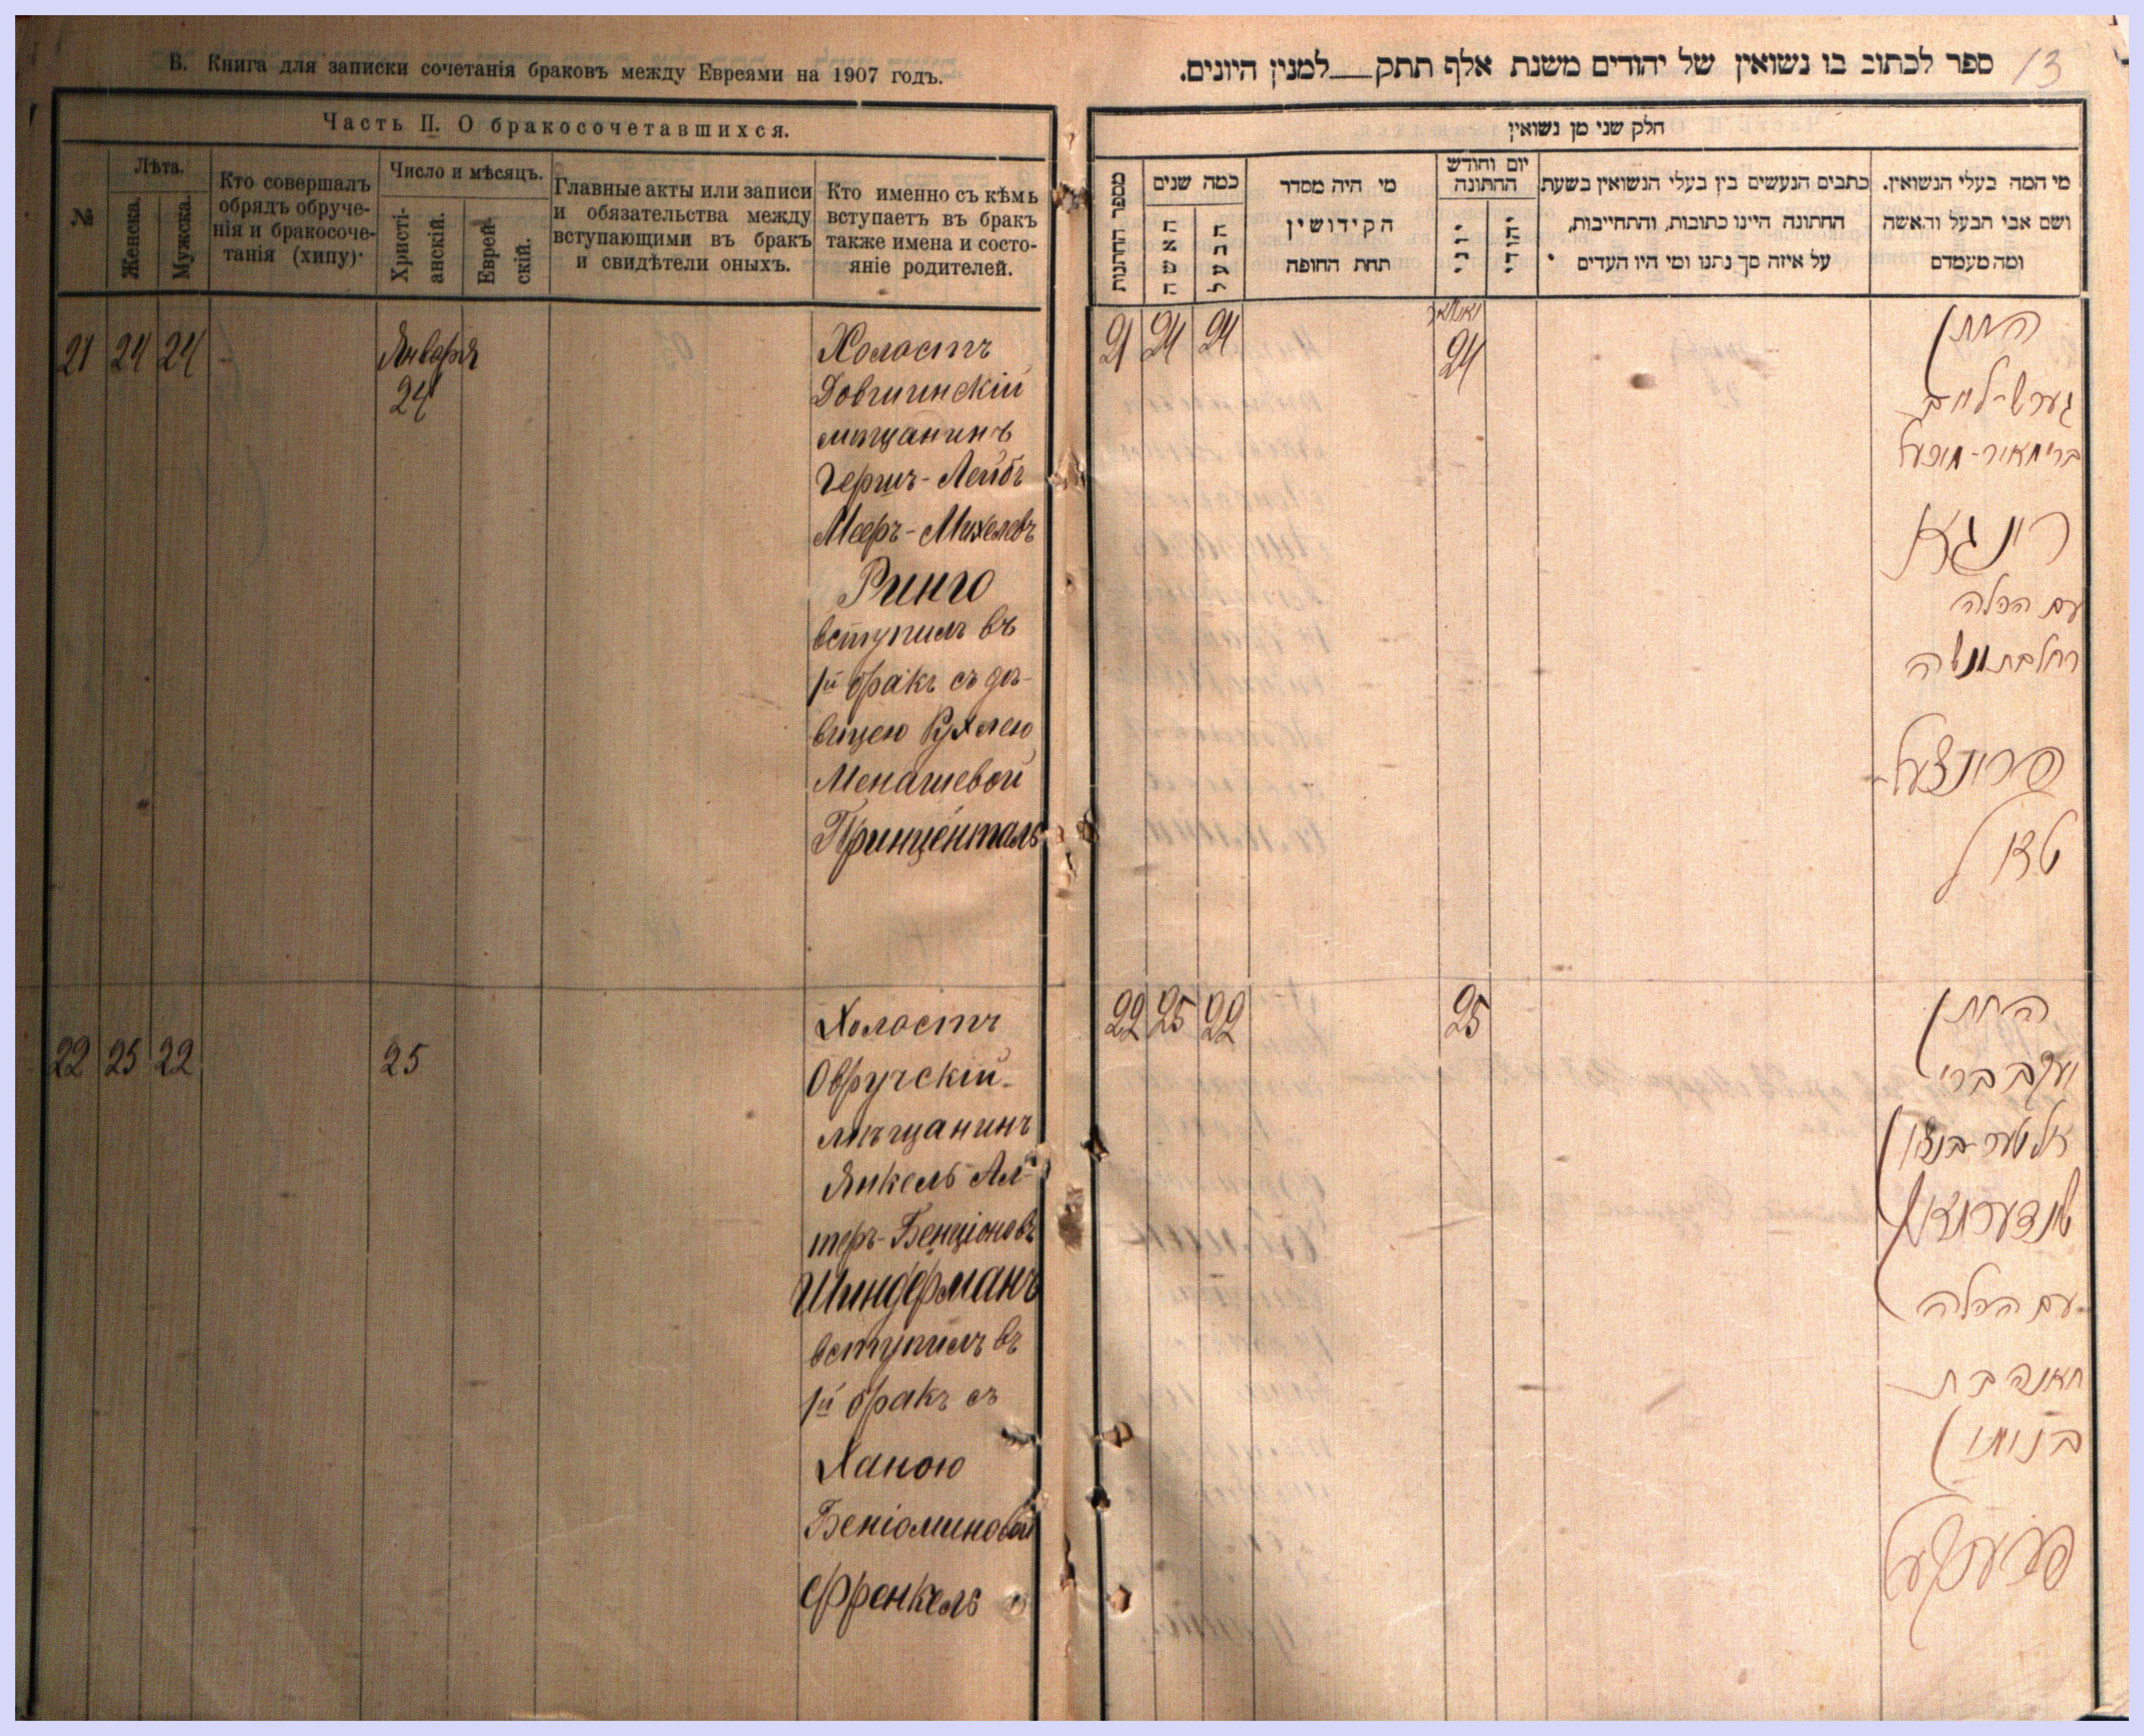 В. Книга для записки сочетанія браковъ между Евреями на 1907 годъ.
Часть II. О бракосочетавшихся.
№
Лѣта.
Женска.
Мужска.
Кто совершалъ
обрядъ обруче-
нія и бракосоче-
танія (хипу).
Число и мѣсяцъ.
Христі-
анскій.
Еврей-
скій.
Главные акты или записи
и обязательства между
вступающими въ бракъ
и свидѣтели оныхъ.
Кто именно съ кѣмъ
вступаетъ въ бракъ
также имена и состо-
яніе родителей.
21 24 24 Января
24
Холостъ
Довгинскій
мѣщанинъ
Гершъ-Лейбъ
Мееръ-Михелевъ
Ринго
вступилъ въ
1й бракъ съ дѣ-
вицею Рухлею
Менашевой
Принценталь
22 25 22 25
Холостъ
Овручскій
мѣщанинъ
Янкель Ал-
теръ-Бенціоновъ
Шиндерманъ
вступилъ въ
1й бракъ съ
Ханою
Беніоминовой
Френкель
13
ספר לכתוב בו נשואין של יהודים משנת אלף תתק__למנין היונים.
חלק שני מן נשואין
מי המה בעלי הנשואין.
ושם אבי הבעל והאשה
ומה מעמדם
כתבים הנעשים בין בעלי הנשואין בשעת
החתונה היינו כתובות, והתחייבות,
על איזה סך נתנו ומי היו העדים
יום וחודש
החתונה
יהודי
יוני
מי היה מסדר
הקידושין
תחת החופה
כמה שנים
הבעל
האשה
מספר החתנות
21 24 24 יאנואר
24
החתן
גערש-לייב
רינגא
עם הכלה
פרינצען
טאל
22 25 22 25
החתן
יעקב ברי
אלטער-בנציון
שינדערמאן
עם הכלה
חאנה בת
בנימין
פרענקעל